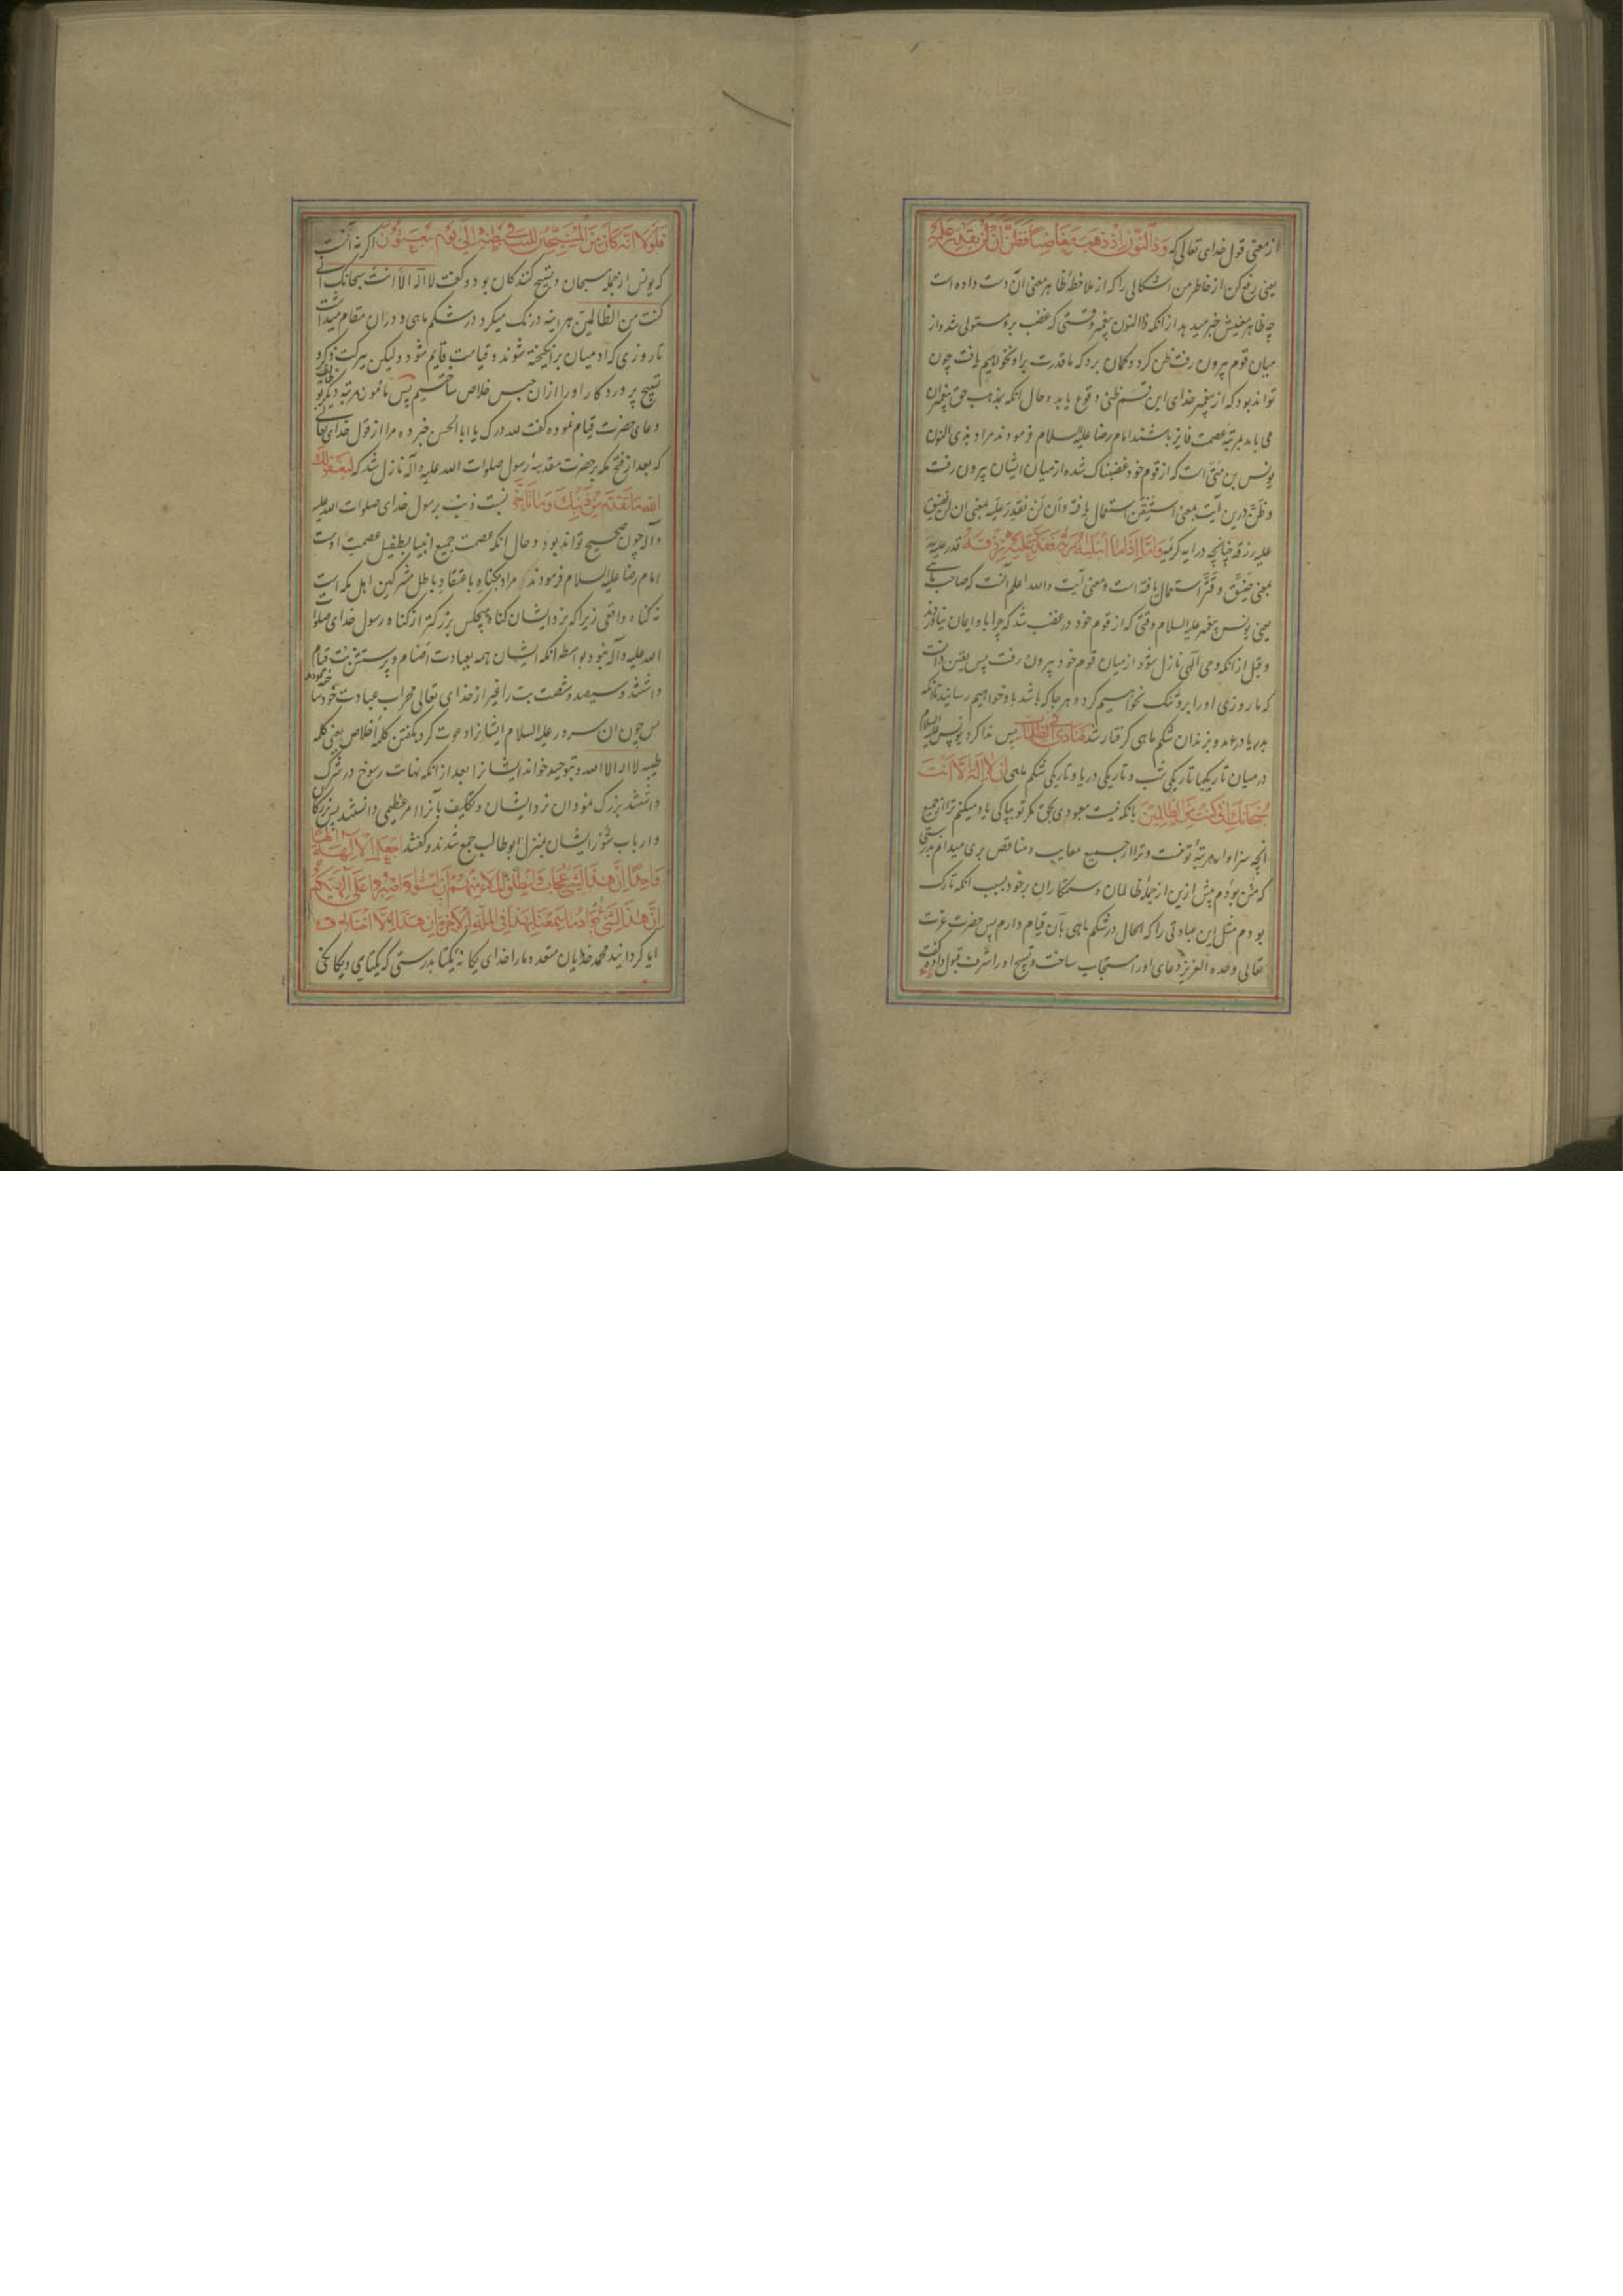 از معنی قول خدای تعالی که وَذَا النُّونِ اِذْ ذَهَبَ مُغَاضِبًا فَظَنَّ اَنْ لَنْ نَقْدِرَ عَلَیْهِ
یعنی رفع کن از خاطر من اشکالی را که از ملاحظهٔ ظاهر معنی آن دست داده است
چه ظاهر معنیش خبر میدهد از انکه ذا النون پیغمبر وقتی که غضب برو مستولی شد و از
میان قوم بیرون رفت ظن کرد و کمان برد که ما قدرت برا و نخواهیم یافت چون
تواند بود که از پیغمبر خدای این قسم ظنی وقوع یابد و حال انکه بمذهب حق پیغمبران
می باید بمرتبهٔ عصمت فایز باشند امام رضا علیه السلام فرمودند مراد بذی النون
یونس بن متی است که از قوم خود غضبناک شده از میان ایشان بیرون رفت
و ظنّ درین آیت بمعنی استیقن استعمال یافته و اَن لَن نقدِرَ علَیه بمعنی ان لن نضیق
علیه رزقه چنانچه در ایه کریمهٔ وَاَمَّا اِذَا مَا ابْتَلٰیهُ فَقَدَرَ عَلَیْهِ رِزْقَهُ قدر علیه
بمعنی ضیَّق و قَتَّرَ استعمال یافته است و معنی آیت والله اعلم آنست که صاحب ماهی
یعنی یونس پیغمبر علیه السلام وقتی که از قوم خود در غضب شد که چرا باو ایمان نیاوردند
و قبل از انکه وحی الهی نازل شود از میان قوم خود بیرون رفت پس یقین دانست
که ما روزی او را برو تنک نخواهیم کرد و هر جا که باشد باو خواهیم رسانید تا انکه
بدریا در امد و بزندان شکم ماهی کرفتار شد فَنَادٰی فِی الظُّلُمَاتِ پس ندا کرد یونس علیه السلام
در میان تاریکیها تاریکی شب و تاریکی دریا و تاریکی شکم ماهی اَنْ لَا اِلٰهَ اِلَّا اَنْتَ
سُبْحَانَكَ اِنِّی كُنْتُ مِنَ الظَّالِمِینَ بانکه نیست معبودی بحق مکر تو بپاکی یاد میکنم ترا از جمیع
انچه سزاوار مرتبهٔ تو نیست و ترا از جمیع معایب و مناقص بری میدانم بدرستی
که من بودم پیش ازین از جملهٔ ظالمان و ستمکاران بر خود بسبب انکه تارک
بودم مثل این عبادتی را که الحال در شکم ماهی بآن قیام دارم پس حضرت عزت
تعالی وحده العزیز دعای او را مستجاب ساخت و تسبیح او را شرف قبول داده گفت
فَلَوْلَا اَنَّهُ كَانَ مِنَ الْمُسَبِّحِینَ لَلَبِثَ فِی بَطْنِهِ اِلٰی یَوْمِ یُبْعَثُونَ اکر نه آنست
که یونس از جمله مسبحان و تسبیح کنندکان بود و گفت لا اله الا انت سبحانک انی
کنت من الظالمین هراینه درنک میکرد در شکم ماهی و در ان مقام میداشت
تا روزی که ادمیان برانکیخته شوند و قیامت قایم شود ولیکن ببرکت ذکر و
تسبیح پروردکار او را ازان حبس خلاص ساختیم پس مامون مرتبه دیکر
دعای حضرت قیام نموده گفت لله درک یا ابا الحسن خبر ده مرا از قول خدای تعالی
که بعد از فتح مکه بر حضرت مقدسهٔ رسول صلوات الله علیه و آله نازل شد که لِیَغْفِرَ لَكَ
اللهُ مَا تَقَدَّمَ مِنْ ذَنْبِكَ وَمَا تَاَخَّرَ نسبت ذنب برسول خدای صلوات الله علیه
و آله چون صحیح تواند بود و حال انکه عصمت جمیع انبیا بطفیل عصمت اوست
امام رضا علیه السلام فرمودند مراد بکناه باعتقاد باطل مشرکین اهل مکه است
نه کناه واقعی زیرا که نزد ایشان کناه هیچکس بزرکتر از کناه رسول خدای صلوات
الله علیه و آله نبود بواسطه انکه ایشان همه بعبادت اصنام و پرستش بت قیام
داشتند و سیصد و شصت بت را غیر از خدای تعالی محراب عبادت خود ساخته بودند
پس چون ان سرور علیه السلام ایشانرا دعوت کرد بکفتن کلمهٔ اخلاص یعنی کلمه
طیبه لا اله الا الله و بتوحید خواند ایشانرا بعد از انکه نهایت رسوخ در شرک
داشتند بزرک نمود ان نزد ایشان و تکلیف بآنرا امر عظیمی دانستند پس بزرکان
و ارباب شور ایشان بمنزل ابوطالب جمع شدند و گفتند اَجَعَلَ الْاٰلِهَةَ اِلٰهًا
وَاحِدًا اِنَّ هٰذَا لَشَیْءٌ عُجَابٌ وَانْطَلَقَ الْمَلَاُ مِنْهُمْ اَنِ امْشُوا وَاصْبِرُوا عَلٰی اٰلِهَتِكُمْ
اِنَّ هٰذَا لَشَیْءٌ یُرَادُ مَا سَمِعْنَا بِهٰذَا فِی الْمِلَّةِ الْاٰخِرَةِ اِنْ هٰذَا اِلَّا اخْتِلَاقٌ
ایا کردانید محمد خدایان متعدده ما را خدای یکانه یکتا بدرستی که یکتایی و یکانکی